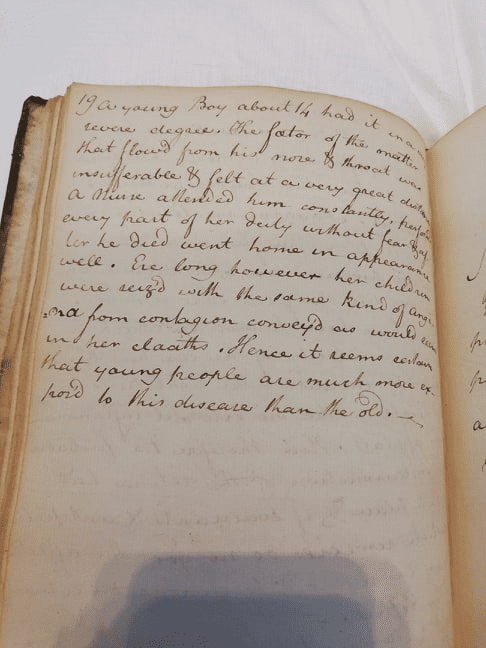 19 A young Boy about 14 had it in a
severe degree. The fœtor of the matter
that flow'd from his nose & throat was
insufferable & felt at a very great distan
A Nurse attended him constantly, perfor
every part of her duty without fear & af
ter he died went home in appearance
well. Ere long however her children
were seiz'd with the same kind of angi
=na from contagion convey'd as would
in her cloaths. Hence it seems certain
that young people are much more ex-
pos'd to this disease than the old.